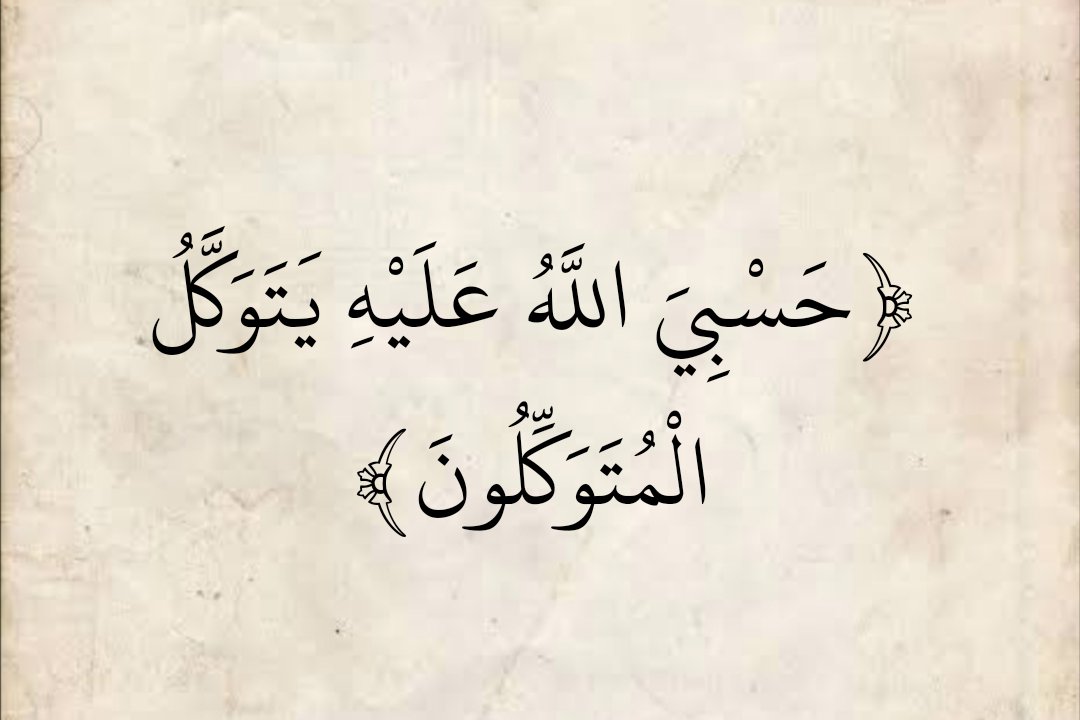 ﴿ حَسْبِيَ اللَّهُ عَلَيْهِ يَتَوَكَّلُ
الْمُتَوَكِّلُونَ ﴾